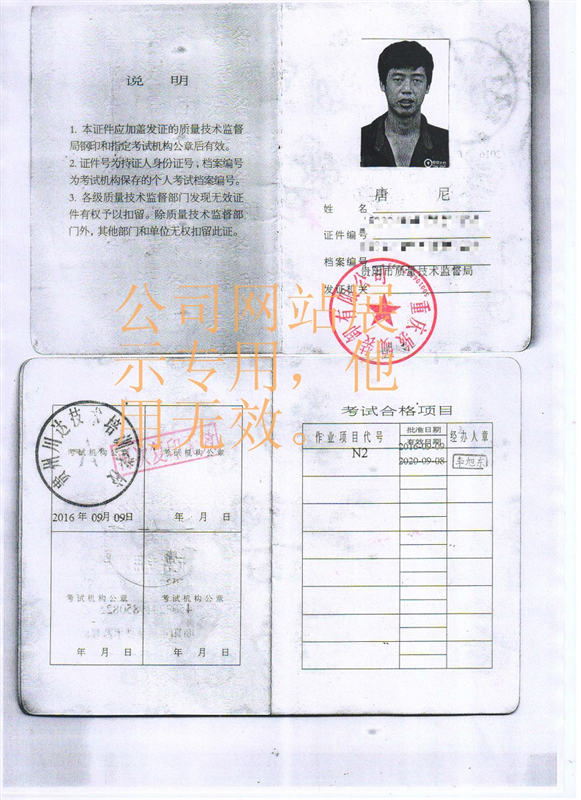 说 明
1. 本证件应加盖发证的质量技术监督
局钢印和指定考试机构公章后有效。
2. 证件号为持证人身份证号，档案编号
为考试机构保存的个人考试档案编号。
3. 各级质量技术监督部门发现无效证
件有权予以扣留。除质量技术监督部
门外，其他部门和单位无权扣留此证。
唐 尼
姓 名
证件编号
档案编号
贵阳市质量技术监督局
发证机关
公司网站展
示专用，他
用无效。
考试合格项目
作业项目代号
批准日期
有效日期
经办人章
N2
2016-09-09
2020-09-08
李旭东
贵州川达技术培训学校
考试机构公章
考试机构公章
2016 年 09月 09日
年 月 日
考试机构公章
考试机构公章
年 月 日
年 月 日